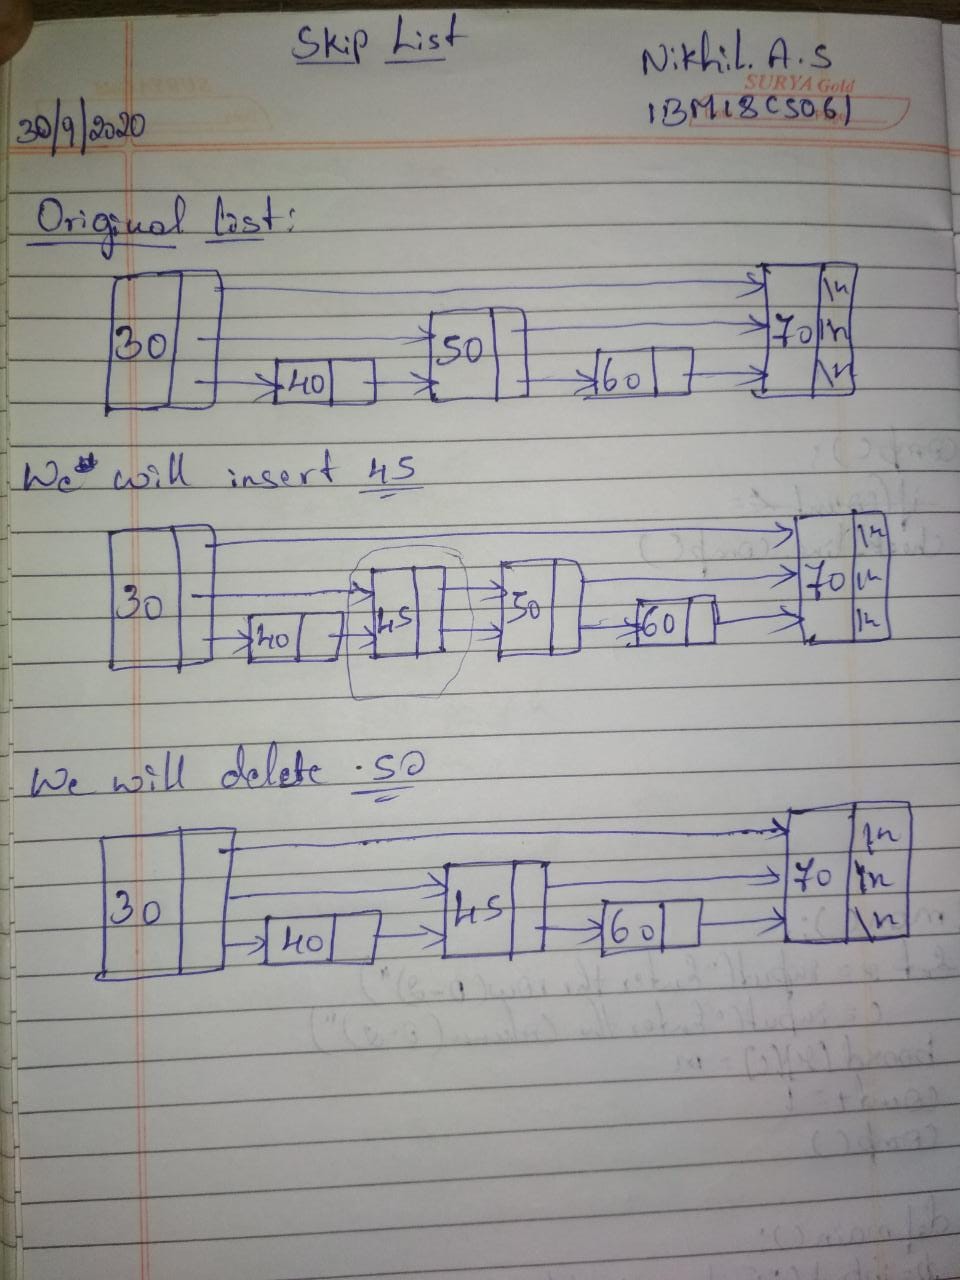 Skip List
Nikhil. A.S
SURYA Gold
1BM18CS061
30/9/2020
Original List:
30 40 50 60 70 \n \n \n
We will insert 45
30 40 45 50 60 70 \n \n \n
We will delete 50
30 40 45 60 70 \n \n \n